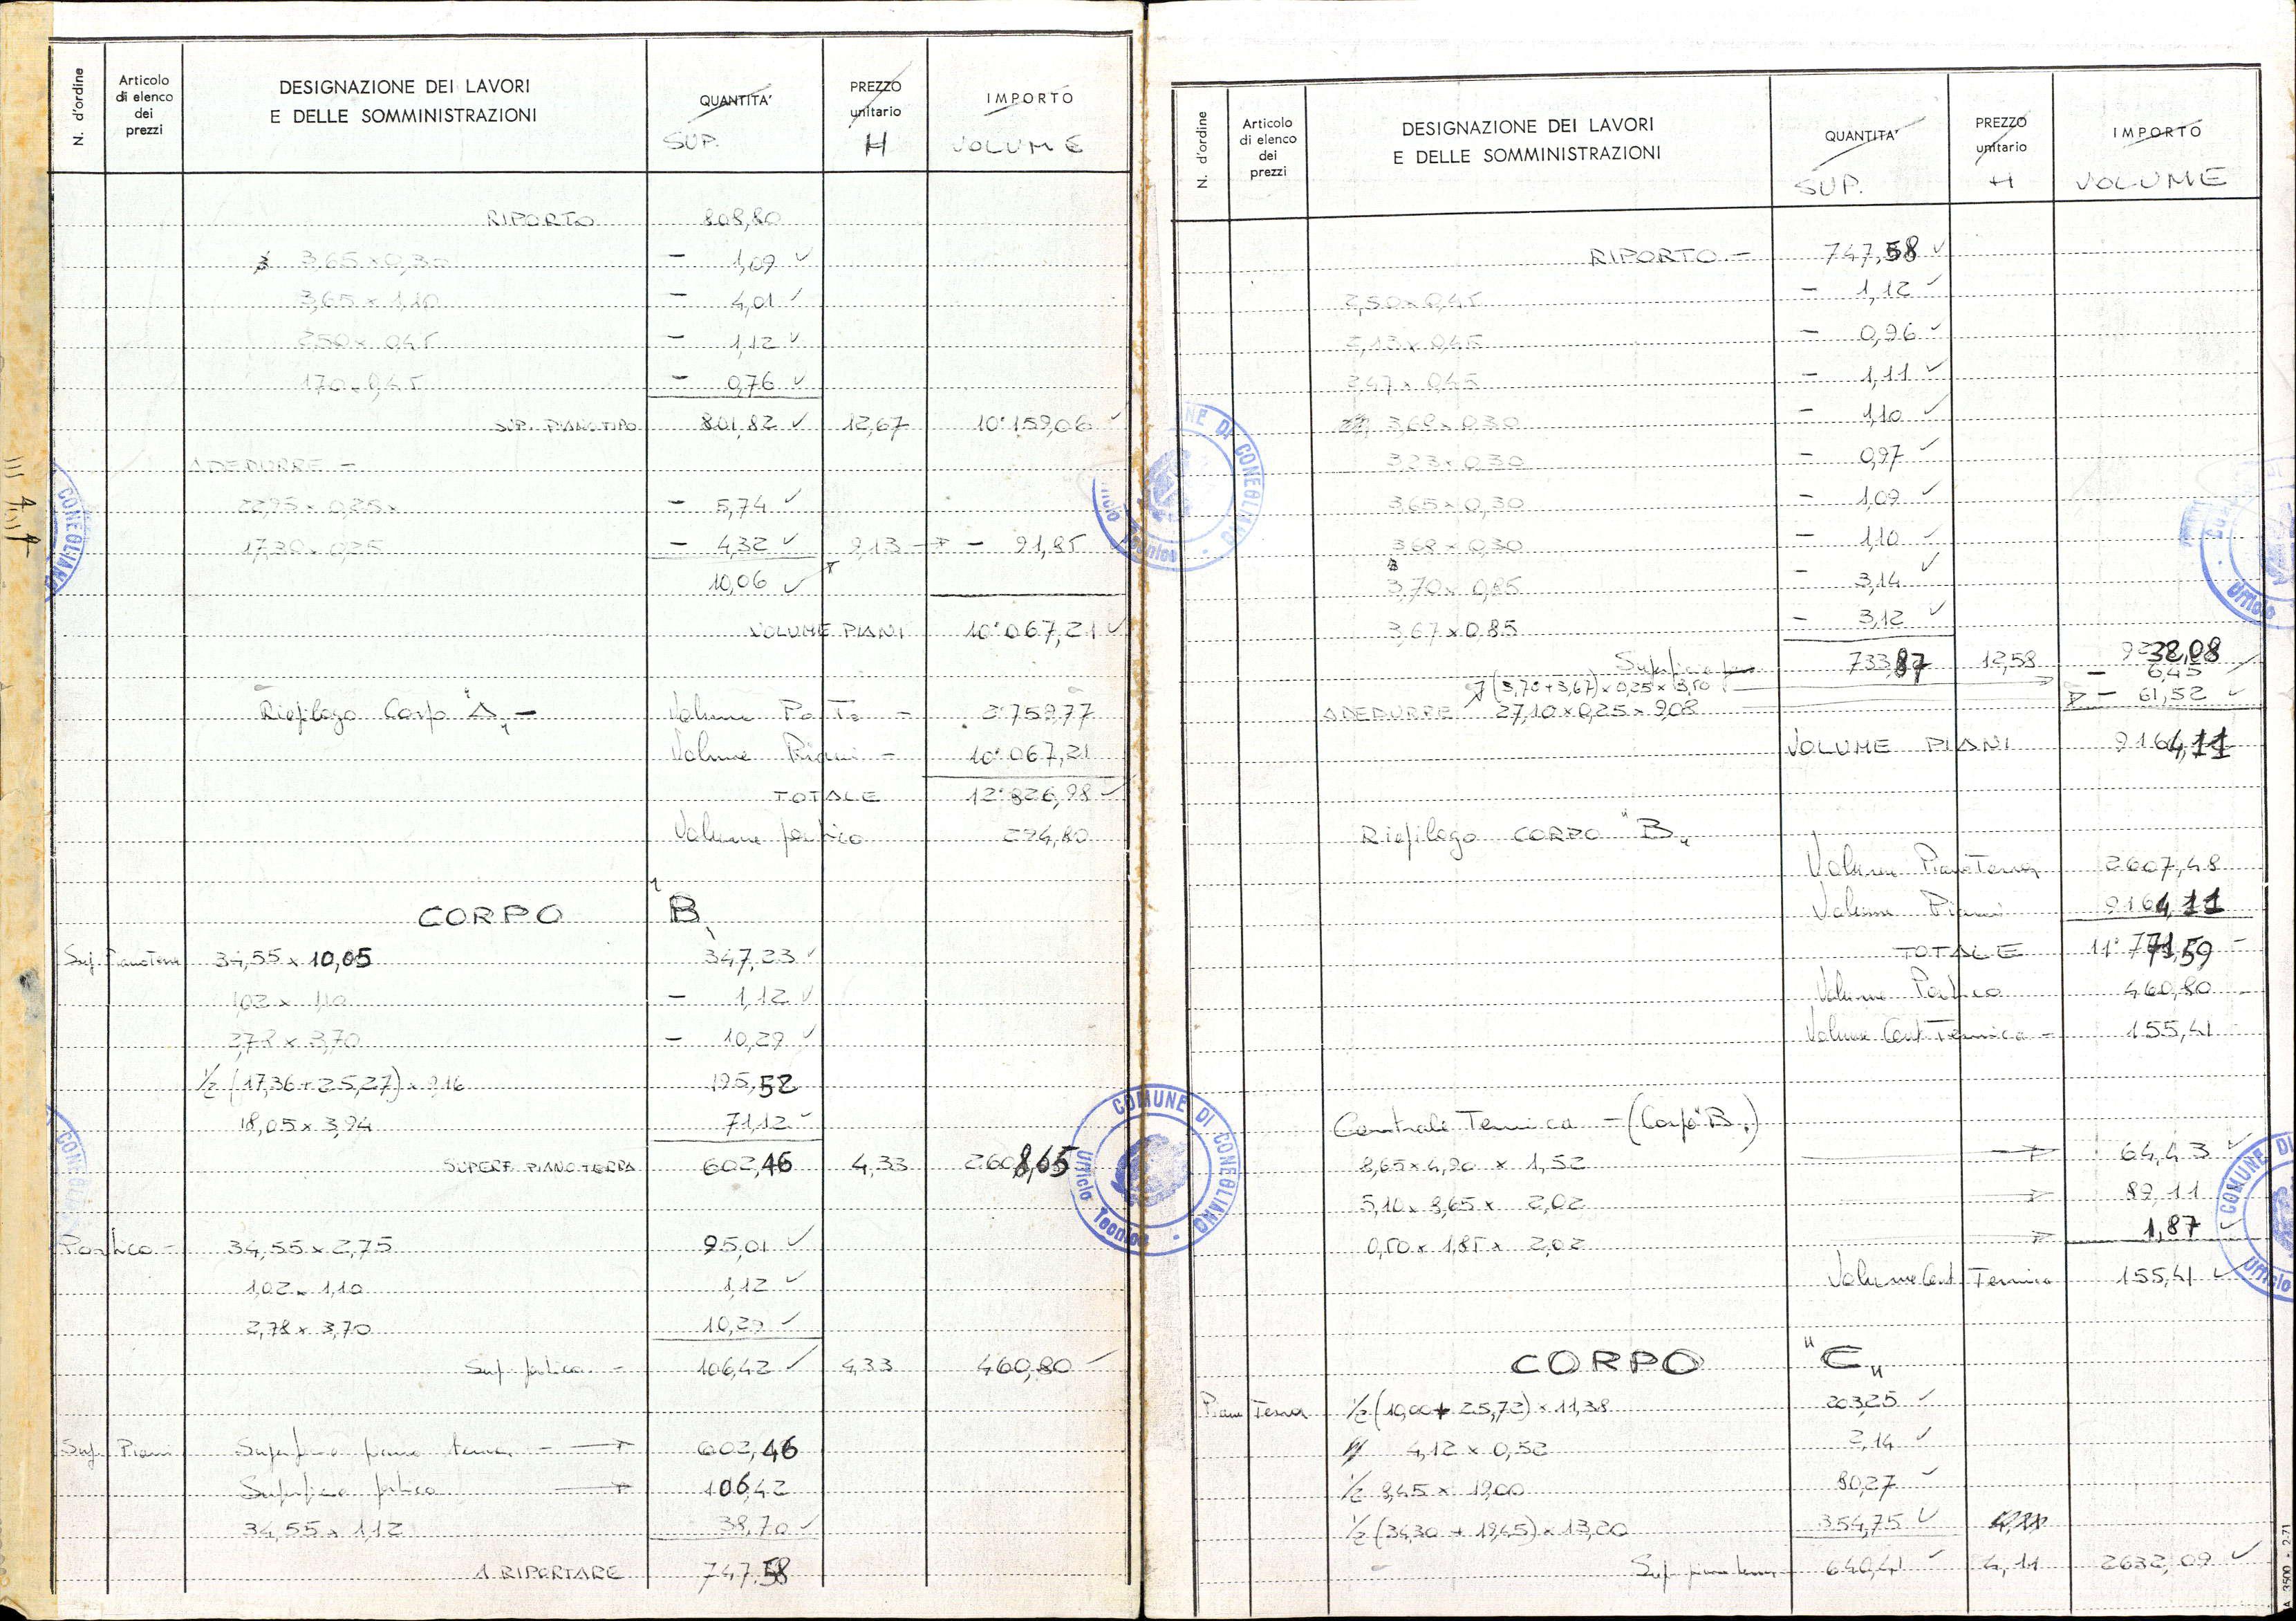 N. d'ordine
Articolo di elenco dei prezzi
DESIGNAZIONE DEI LAVORI E DELLE SOMMINISTRAZIONI
QUANTITA' SUP.
PREZZO unitario H
IMPORTO VOLUME
RIPORTO 808,80
3,65 x 0,30 - 1,09 ✓
3,65 x 1,10 - 4,01 ✓
2,50 x 0,45 - 1,12 ✓
1,70 x 0,45 - 0,76 ✓
SUP. PIANO TIPO 801,82 ✓ 12,67 10'159,06 ✓
A DEDURRE -
22,95 x 0,25 - 5,74 ✓
17,30 x 0,25 - 4,32 ✓ 9,13 → - 91,85
10,06 ✓
VOLUME PIANI 10'067,21 ✓
Riepilogo Corpo "A" - Volume P° T° - 2'759,77
Volume Piani - 10'067,21
TOTALE 12'826,98 ✓
Volume portico 294,80
CORPO "B"
Sup. Piano Terra 34,55 x 10,05 347,23 ✓
1,02 x 1,10 - 1,12 ✓
2,78 x 3,70 - 10,29 ✓
1/2 (17,36 + 25,27) x 9,16 195,52
18,05 x 3,94 71,12 ✓
SUPERF. PIANO TERRA 602,46 4,33 2608,65
Portico - 34,55 x 2,75 95,01 ✓
1,02 x 1,10 1,12 ✓
2,78 x 3,70 10,29 ✓
Sup. portico - 106,42 ✓ 4,33 460,80 ✓
Sup. Piani Superficie piano terra - → 602,46
Superficie portico → 106,42
34,55 x 1,12 38,70 ✓
A RIPORTARE 747,58
COMUNE DI CONEGLIANO
Ufficio Tecnico
N. d'ordine
Articolo di elenco dei prezzi
DESIGNAZIONE DEI LAVORI E DELLE SOMMINISTRAZIONI
QUANTITA' SUP.
PREZZO unitario H
IMPORTO VOLUME
RIPORTO - 747,58 ✓
2,50 x 0,45 - 1,12 ✓
2,13 x 0,45 - 0,96 ✓
2,47 x 0,45 - 1,11 ✓
3,68 x 0,30 - 1,10 ✓
3,23 x 0,30 - 0,97 ✓
3,65 x 0,30 - 1,09 ✓
3,68 x 0,30 - 1,10 ✓
3,70 x 0,85 - 3,14 ✓
3,67 x 0,85 - 3,12 ✓
Superficie 733,87 12,58 9232,08
(3,70 + 3,67) x 0,25 x 3,50 - 6,45
A DEDURRE 27,10 x 0,25 x 9,08 - 61,52 ✓
VOLUME PIANI 9164,11
Riepilogo CORPO "B"
Volume Piano Terra 2607,48
Volume Piani 9164,11
TOTALE 11'771,59 -
Volume Portico 460,80
Volume Cent. Termica - 155,41
Centrale Termica - (Corpo "B")
8,65 x 4,90 x 1,52 → 64,43 ✓
5,10 x 8,65 x 2,02 → 89,11
0,50 x 1,85 x 2,02 → 1,87 ✓
Volume Cent. Termica 155,41 ✓
CORPO "C"
Piano Terra 1/2 (10,00 + 25,72) x 11,38 203,25 ✓
4,12 x 0,52 2,14 ✓
1/2 8,45 x 19,00 80,27 ✓
1/2 (34,30 + 19,45) x 13,20 354,75 ✓
Sup. piano terra 640,41 ✓ 4,11 2632,09 ✓
COMUNE DI CONEGLIANO
Ufficio Tecnico